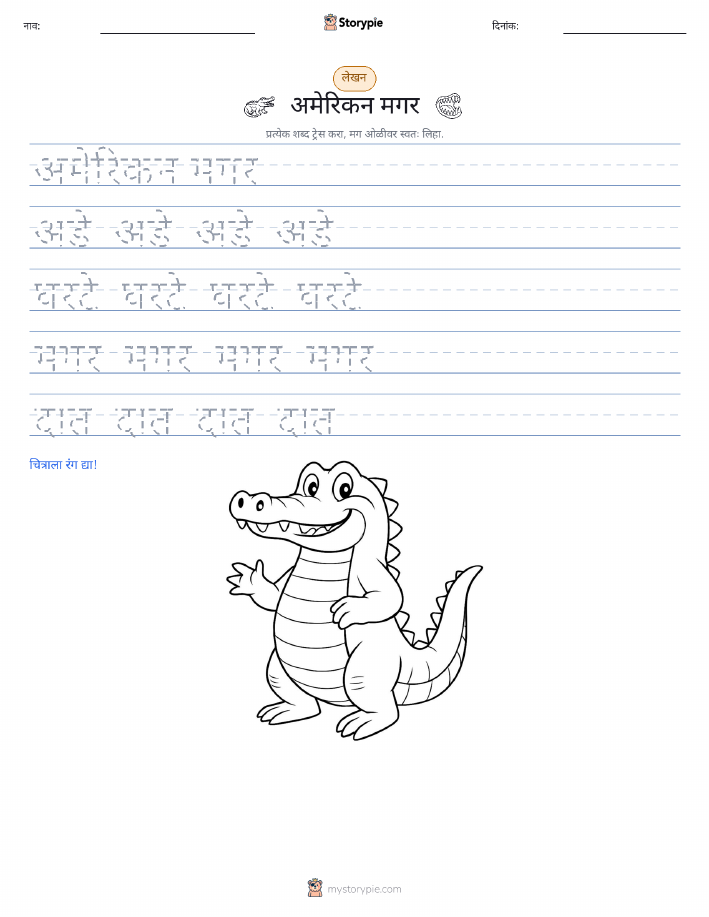 नाव: Storypie दिनांक:
लेखन
अमेरिकन मगर
प्रत्येक शब्द ट्रेस करा, मग ओळीवर स्वतः लिहा.
अमेरिकन मगर
अंडे अंडे अंडे अंडे
घरटे घरटे घरटे घरटे
मगर मगर मगर मगर
दात दात दात दात
चित्राला रंग द्या!
mystorypie.com